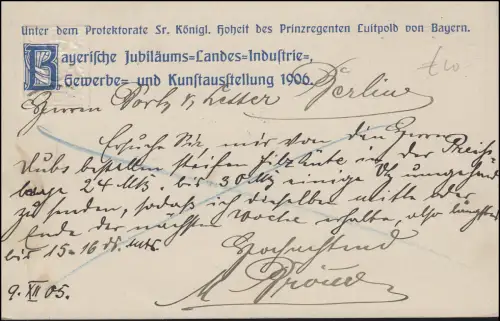 Unter dem Protektorate Sr. Königl. Hoheit des Prinzregenten Luitpold von Bayern.
Bayerische Jubiläums-Landes-Industrie-,
Gewerbe- und Kunstausstellung 1906.
Herren Berlin
Ersuche Sie, mir von den Herrn
bestellten steifen Filzhüte in der Preis-
lage 24 Mk. bis 30 Mk einige umgehend
zu senden, sodaß ich dieselben mitte oder
Ende der nächsten Woche erhalte, also längstens
bis 15.-16. ds. Mts.
Hochachtend
M
9. XII 05.